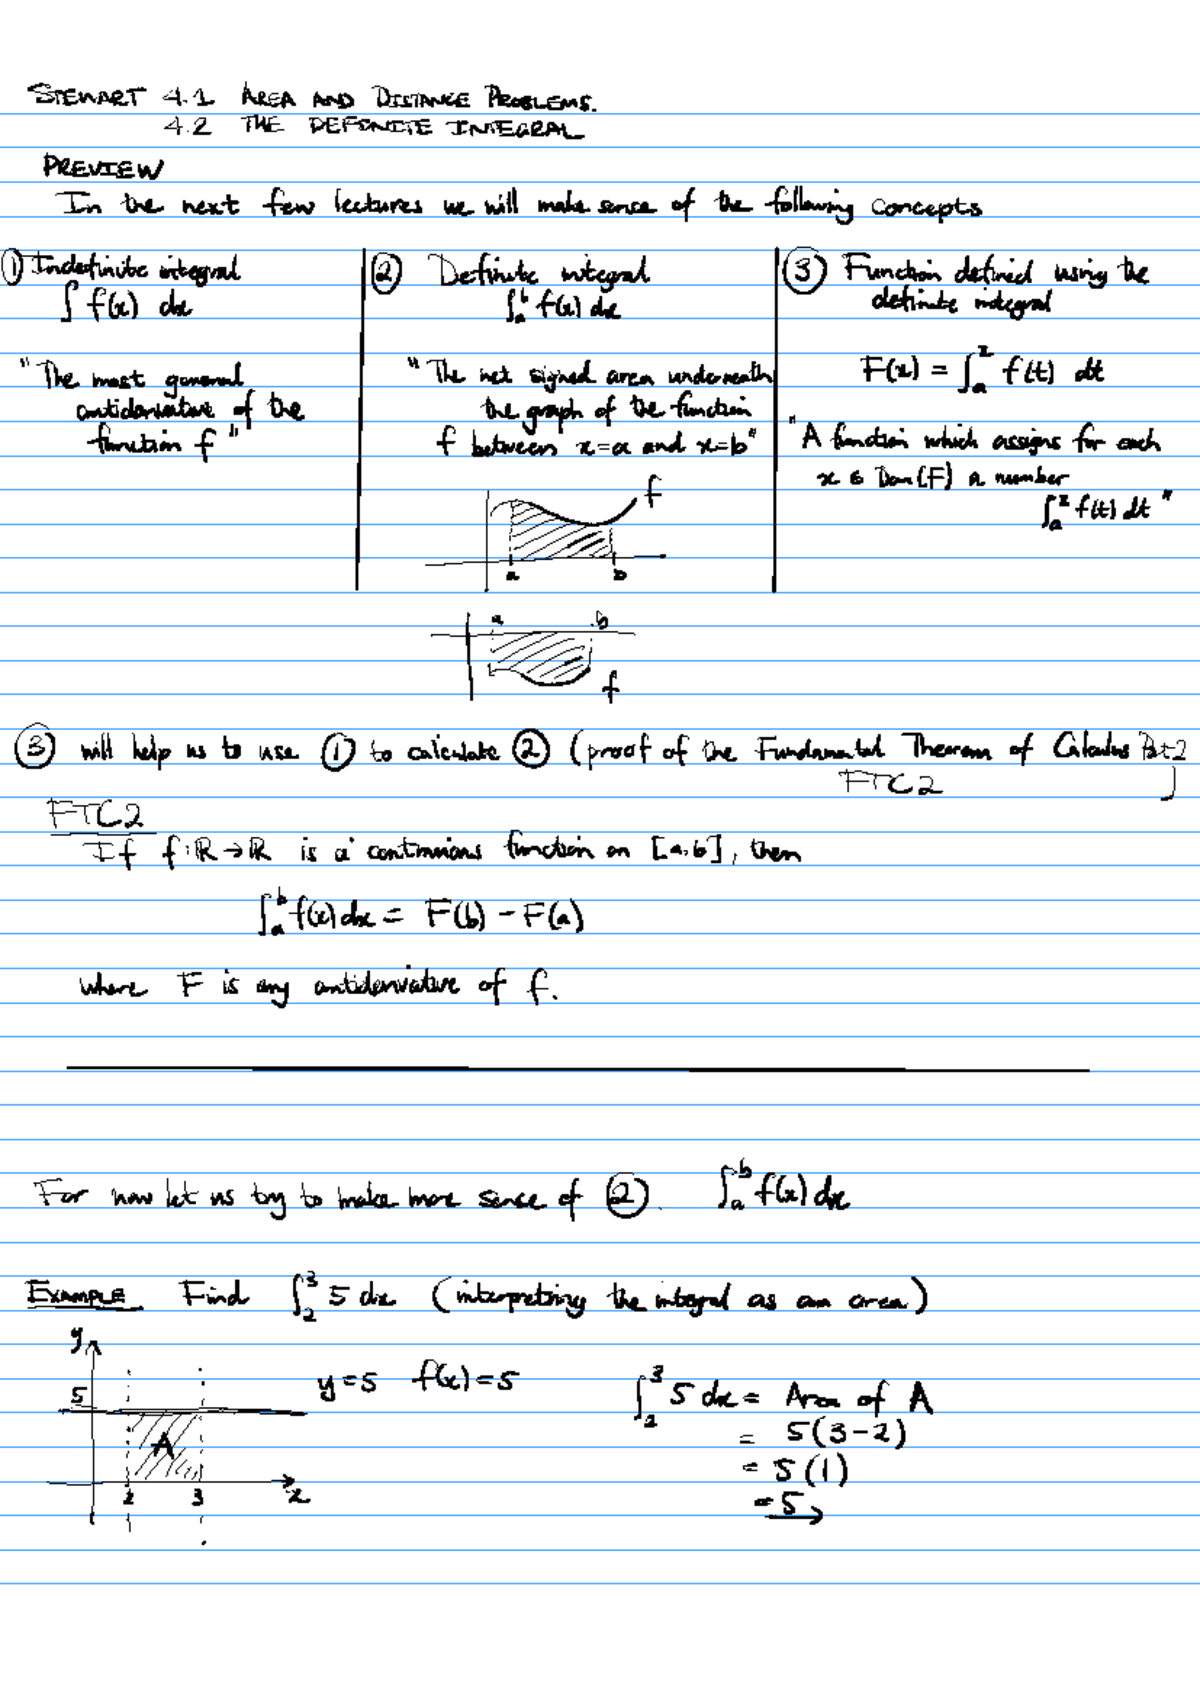 STEWART 4.1 AREA AND DISTANCE PROBLEMS.
4.2 THE DEFINITE INTEGRAL
PREVIEW
In the next few lectures we will make sense of the following concepts
① Indefinite integral
∫ f(x) dx
"The most general
antiderivative of the
function f"
② Definite integral
∫_a^b f(x) dx
"The net signed area underneath
the graph of the function
f between x=a and x=b"
f
a b
a b
f
③ Function defined using the
definite integral
F(x) = ∫_a^x f(t) dt
"A function which assigns for each
x ∈ Dom(F) a number
∫_a^x f(t) dt"
③ will help us to use ① to calculate ② (proof of the Fundamental Theorem of Calculus Part 2
FTC2 )
FTC2
If f: ℝ → ℝ is a continuous function on [a,b], then
∫_a^b f(x) dx = F(b) - F(a)
where F is any antiderivative of f.
For now let us try to make more sense of ②. ∫_a^b f(x) dx
EXAMPLE Find ∫_2^3 5 dx (interpreting the integral as an area)
y
5
A
2 3 x
y=5 f(x)=5
∫_2^3 5 dx = Area of A
= 5(3-2)
= 5(1)
= 5